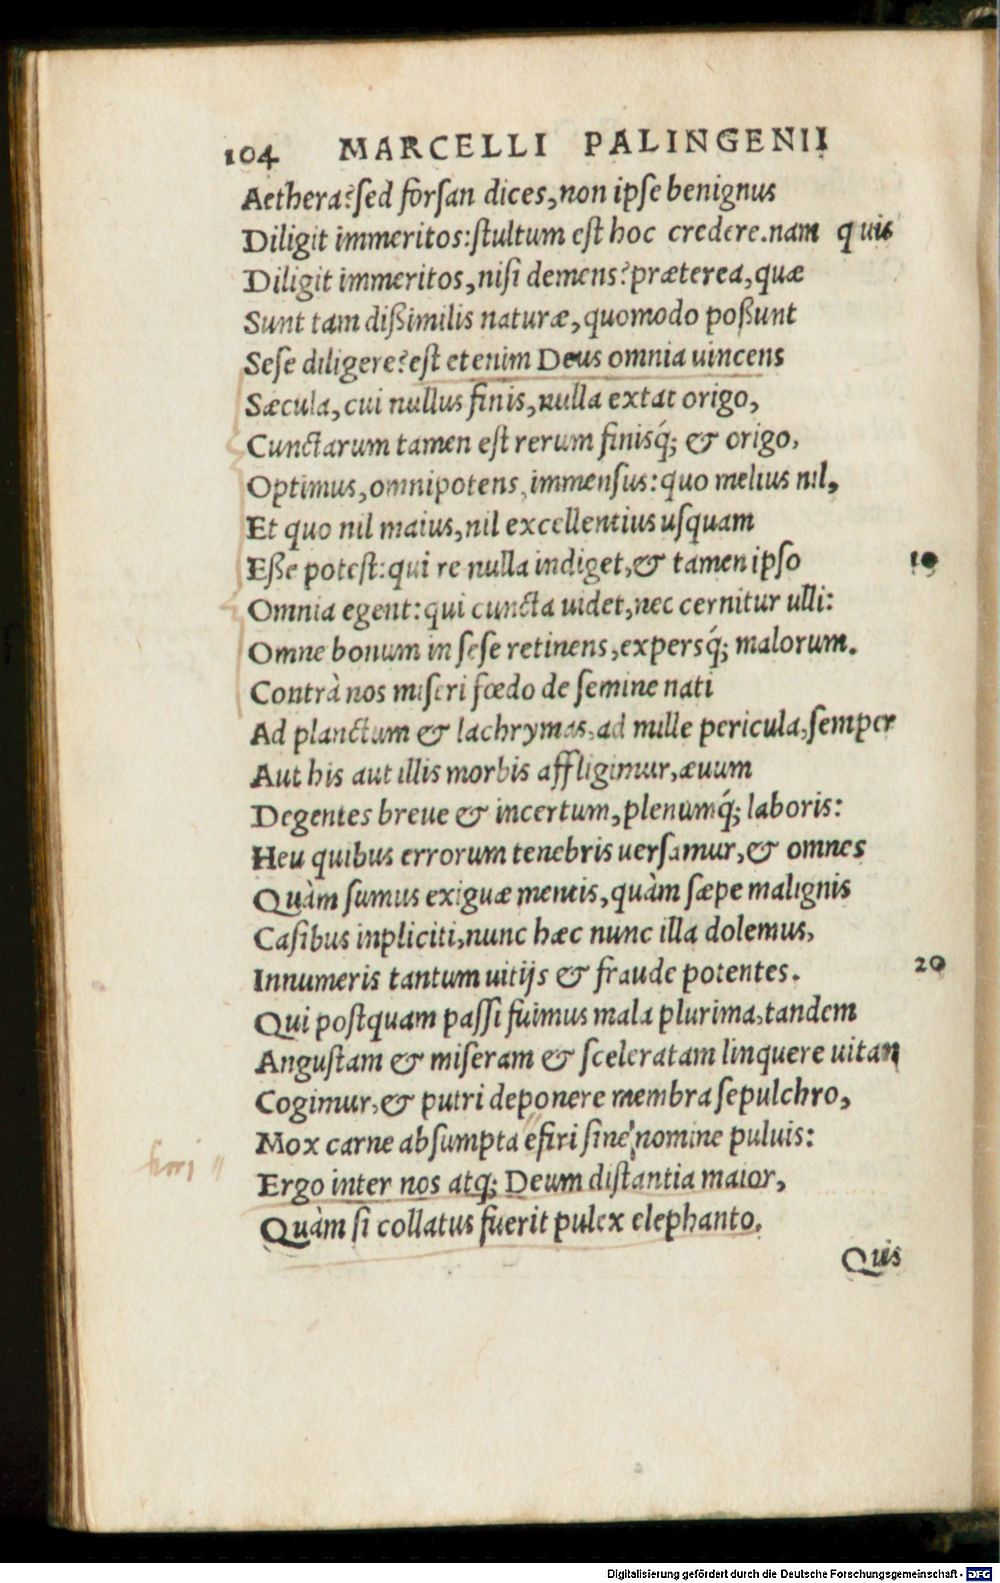 104 MARCELLI PALINGENII
Aethera? sed forſan dices, non ipſe benignus
Diligit immeritos: ſtultum eſt hoc credere. nam quis
Diligit immeritos, niſi demens? præterea, quæ
Sunt tam dißimilis naturæ, quomodo poßunt
Seſe diligere? eſt etenim Deus omnia uincens
Sæcula, cui nullus finis, nulla extat origo,
Cunctarum tamen eſt rerum finisq́; & origo,
Optimus, omnipotens, immenſus: quo melius nil,
Et quo nil maius, nil excellentius uſquam
Eße poteſt: qui re nulla indiget, & tamen ipſo 10
Omnia egent: qui cuncta uidet, nec cernitur ulli:
Omne bonum in ſeſe retinens, expersq́; malorum.
Contrà nos miſeri fœdo de ſemine nati
Ad planctum & lachrymas, ad mille pericula, ſemper
Aut his aut illis morbis affligimur, æuum
Degentes breue & incertum, plenumq́; laboris:
Heu quibus errorum tenebris uerſamur, & omnes
Quàm ſumus exiguæ mentis, quàm ſæpe malignis
Caſibus inpliciti, nunc hæc nunc illa dolemus,
Innumeris tantum uitijs & fraude potentes. 20
Qui poſtquam paſſi fuimus mala plurima, tandem
Anguſtam & miſeram & ſceleratam linquere uitam
Cogimur, & putri deponere membra ſepulchro,
Mox carne abſumpta efiri ſine nomine puluis:
Ergo inter nos atq; Deum diſtantia maior,
Quàm ſi collatus fuerit pulex elephanto.
Quis
Digitalisierung gefördert durch die Deutsche Forschungsgemeinschaft - DFG